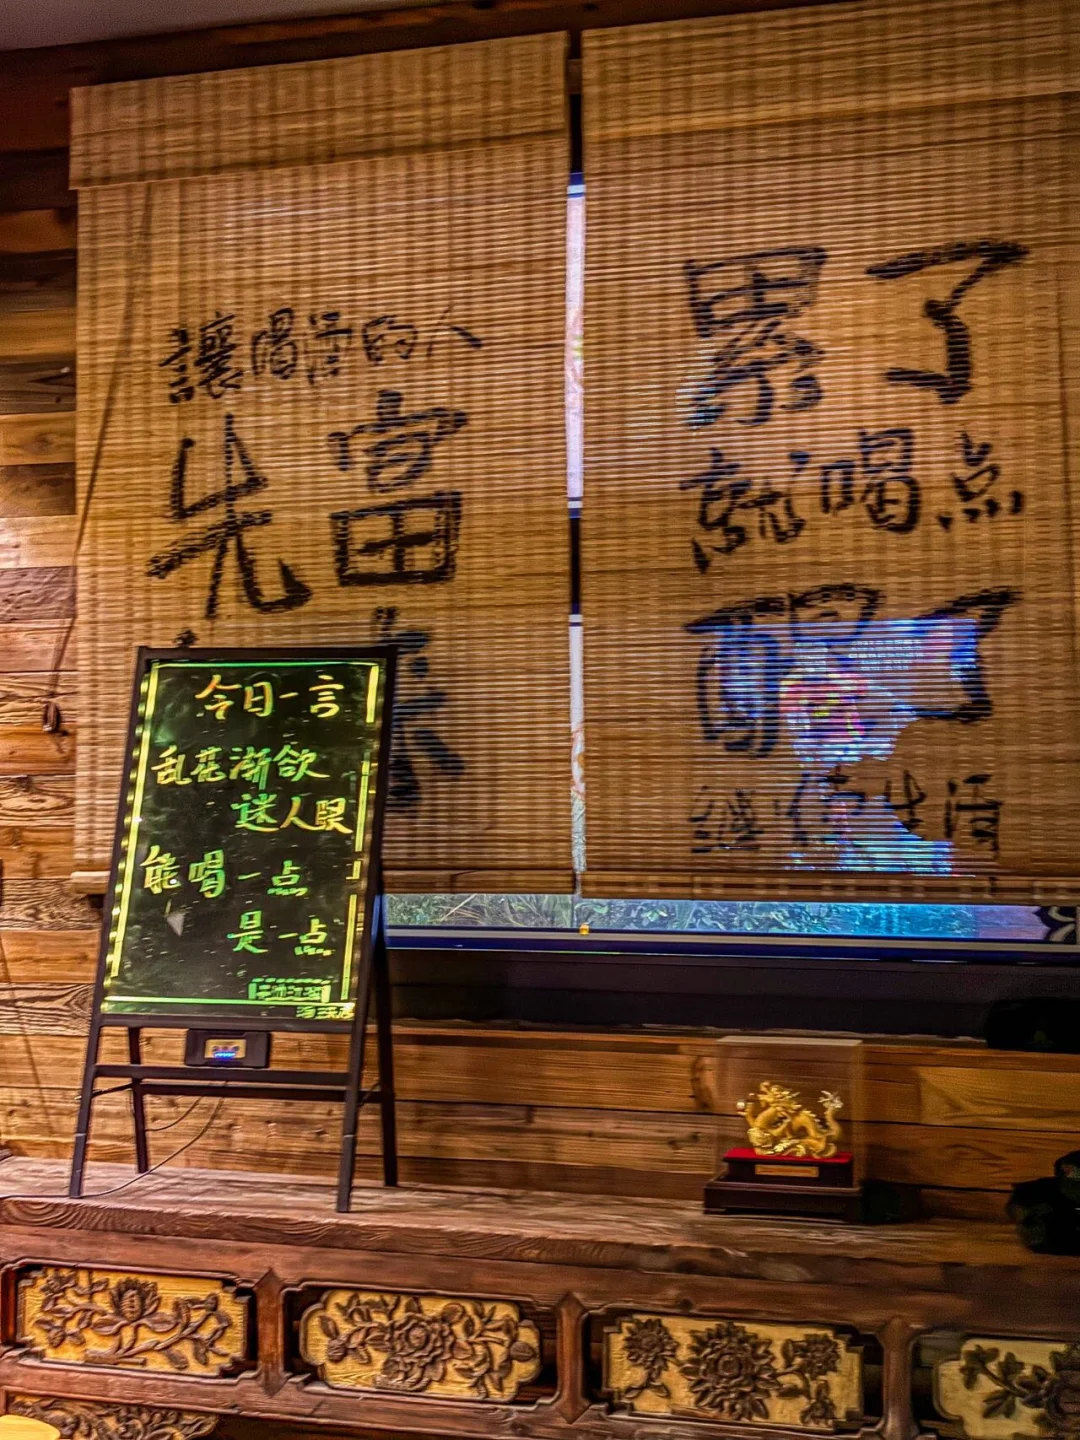 讓喝酒的人
先富
累了
就喝点
醒了
继续生活
今日一言
乱花渐欲
迷人眼
能喝一点
是一点